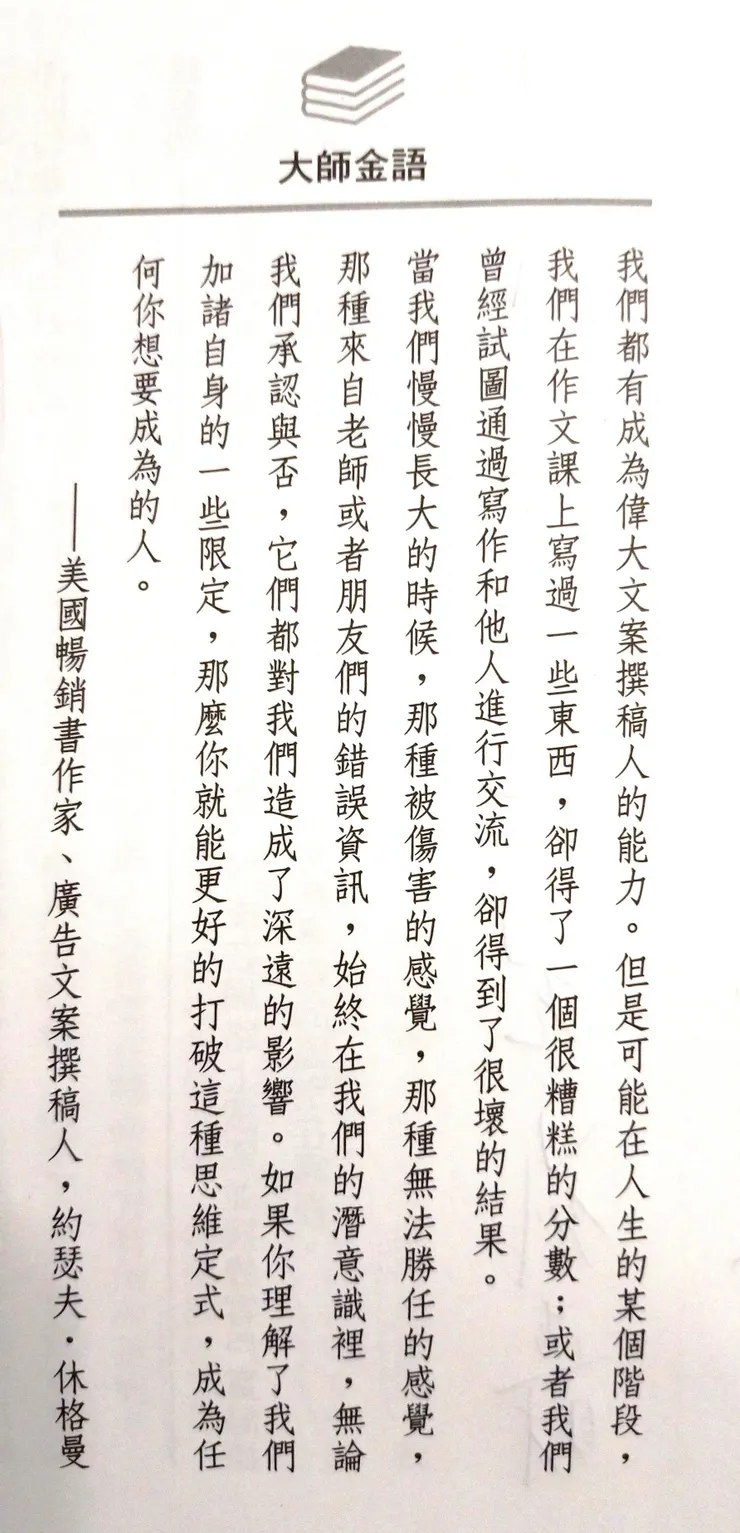 大師金語
我們都有成為偉大文案撰稿人的能力。但是可能在人生的某個階段，
我們在作文課上寫過一些東西，卻得了一個很糟糕的分數；或者我們
曾經試圖通過寫作和他人進行交流，卻得到了很壞的結果。
當我們慢慢長大的時候，那種被傷害的感覺，那種無法勝任的感覺，
那種來自老師或者朋友們的錯誤資訊，始終在我們的潛意識裡，無論
我們承認與否，它們都對我們造成了深遠的影響。如果你理解了我們
加諸自身的一些限定，那麼你就能更好的打破這種思維定式，成為任
何你想要成為的人。
——美國暢銷書作家、廣告文案撰稿人，約瑟夫・休格曼